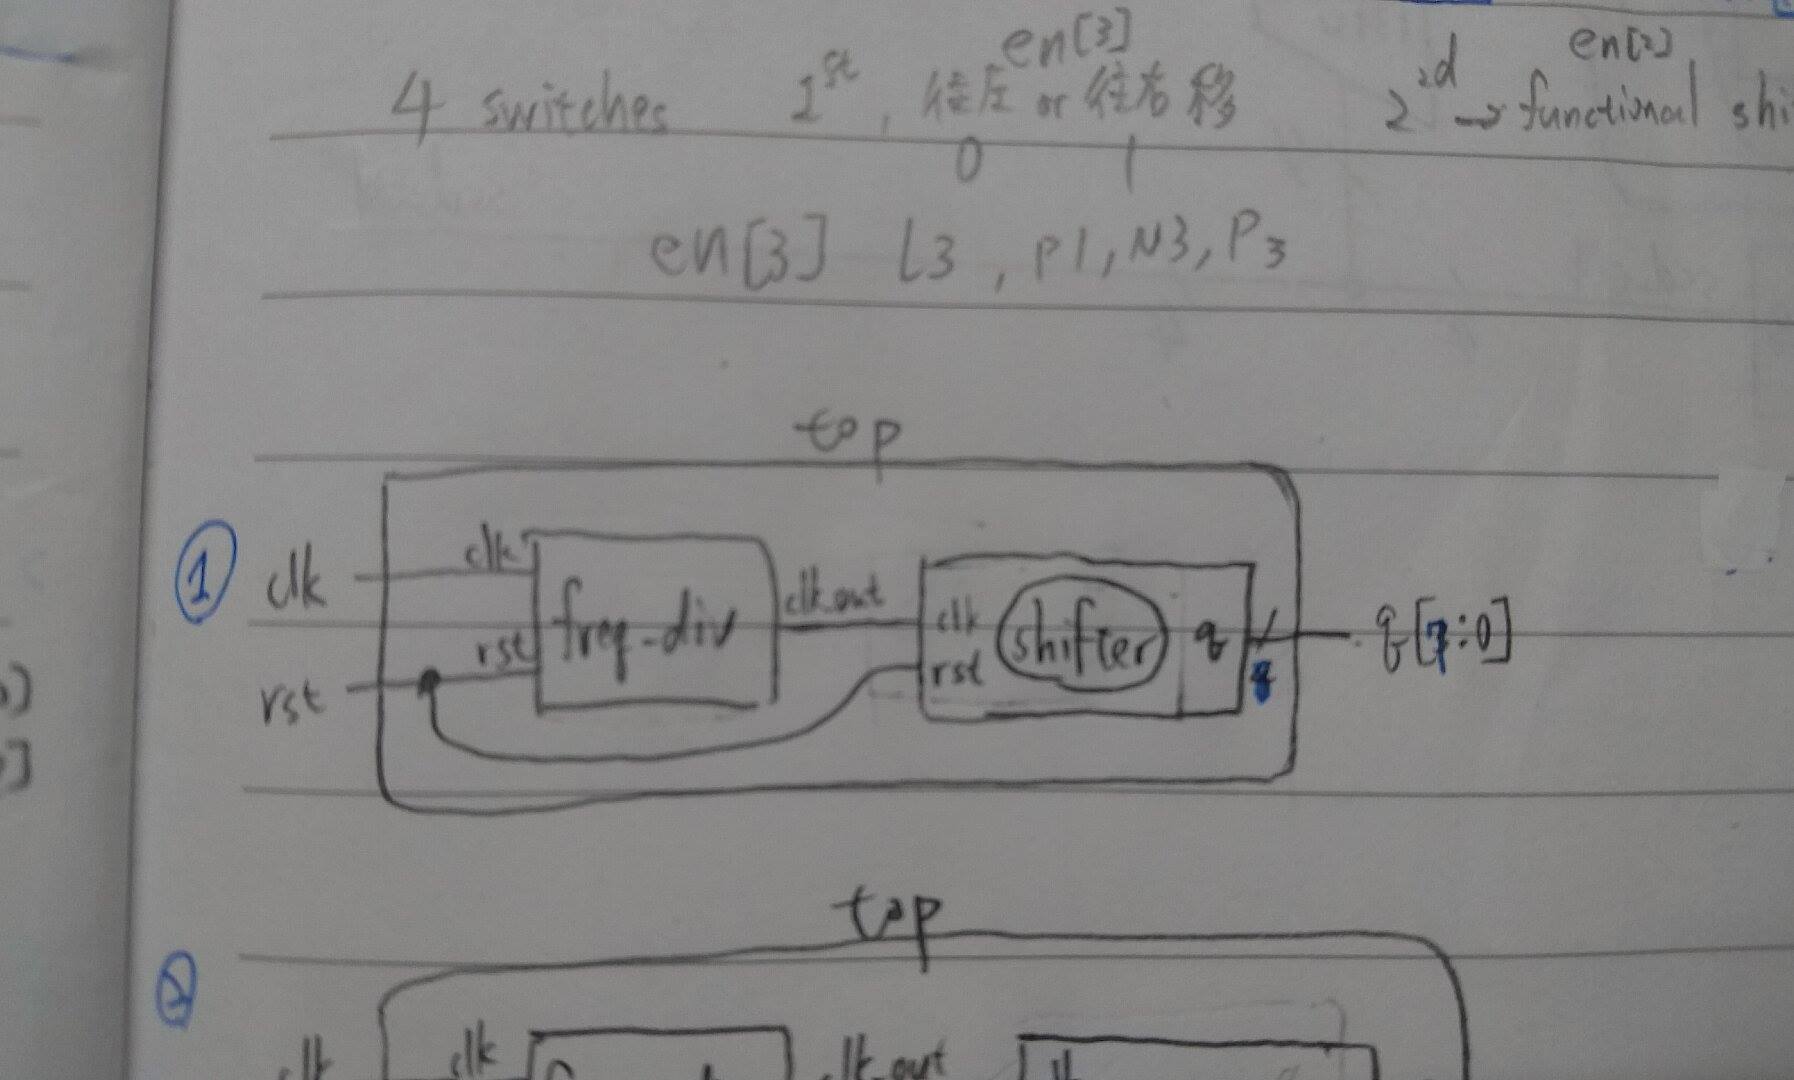 en[3] en[2]
4 switches 1st, 往左 or 往右移 2nd → functional shi
0 1
en[3] L3, P1, N3, P3
top
① clk clk freq-div clk_out clk shifter q q[7:0]
rst rst rst
top
②
clk clk clk_out